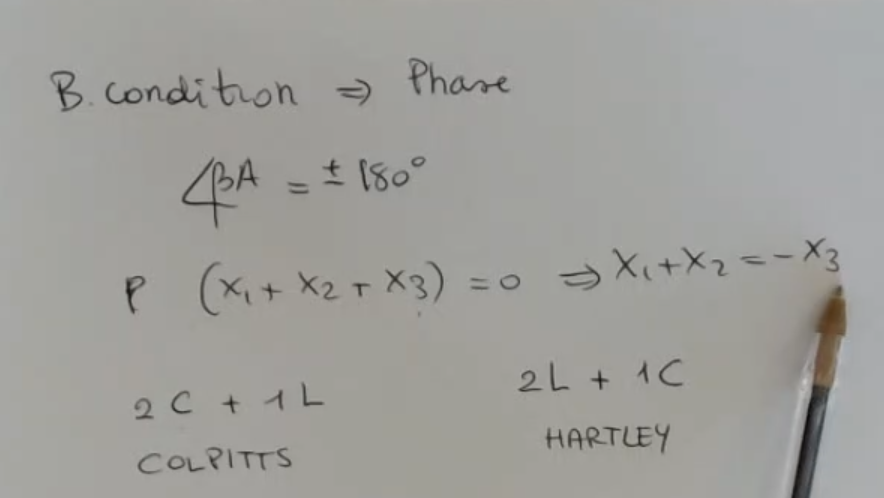 B. condition ⇒ Phase
∠βA = ± 180°
P (X₁ + X₂ + X₃) = 0 ⇒ X₁ + X₂ = - X₃
2 C + 1 L
2L + 1C
COLPITTS
HARTLEY